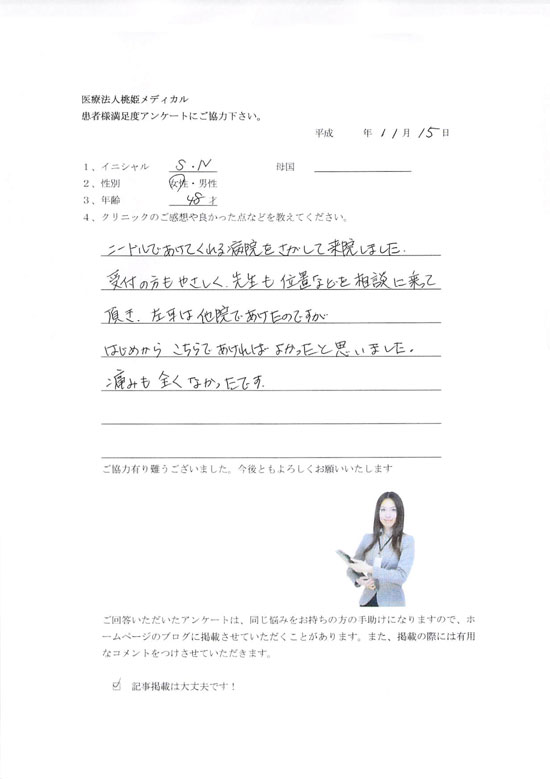 医療法人桃姫メディカル
患者様満足度アンケートにご協力下さい。
平成 年 11月 15日
1、イニシャル S・N 母国
2、性別 女性・男性
3、年齢 48 才
4、クリニックのご感想や良かった点などを教えてください。
ニードルであけてくれる病院をさがして来院しました.
受付の方もやさしく.先生も位置などを相談に乗って
頂き.左耳は他院であけたのですが
はじめからこちらであければよかったと思いました。
痛みも全くなかったです.
ご協力有り難うございました。今後ともよろしくお願いいたします
ご回答いただいたアンケートは、同じ悩みをお持ちの方の手助けになりますので、ホ
ームページのブログに掲載させていただくことがあります。また、掲載の際には有用
なコメントをつけさせていただきます。
☑ 記事掲載は大丈夫です！